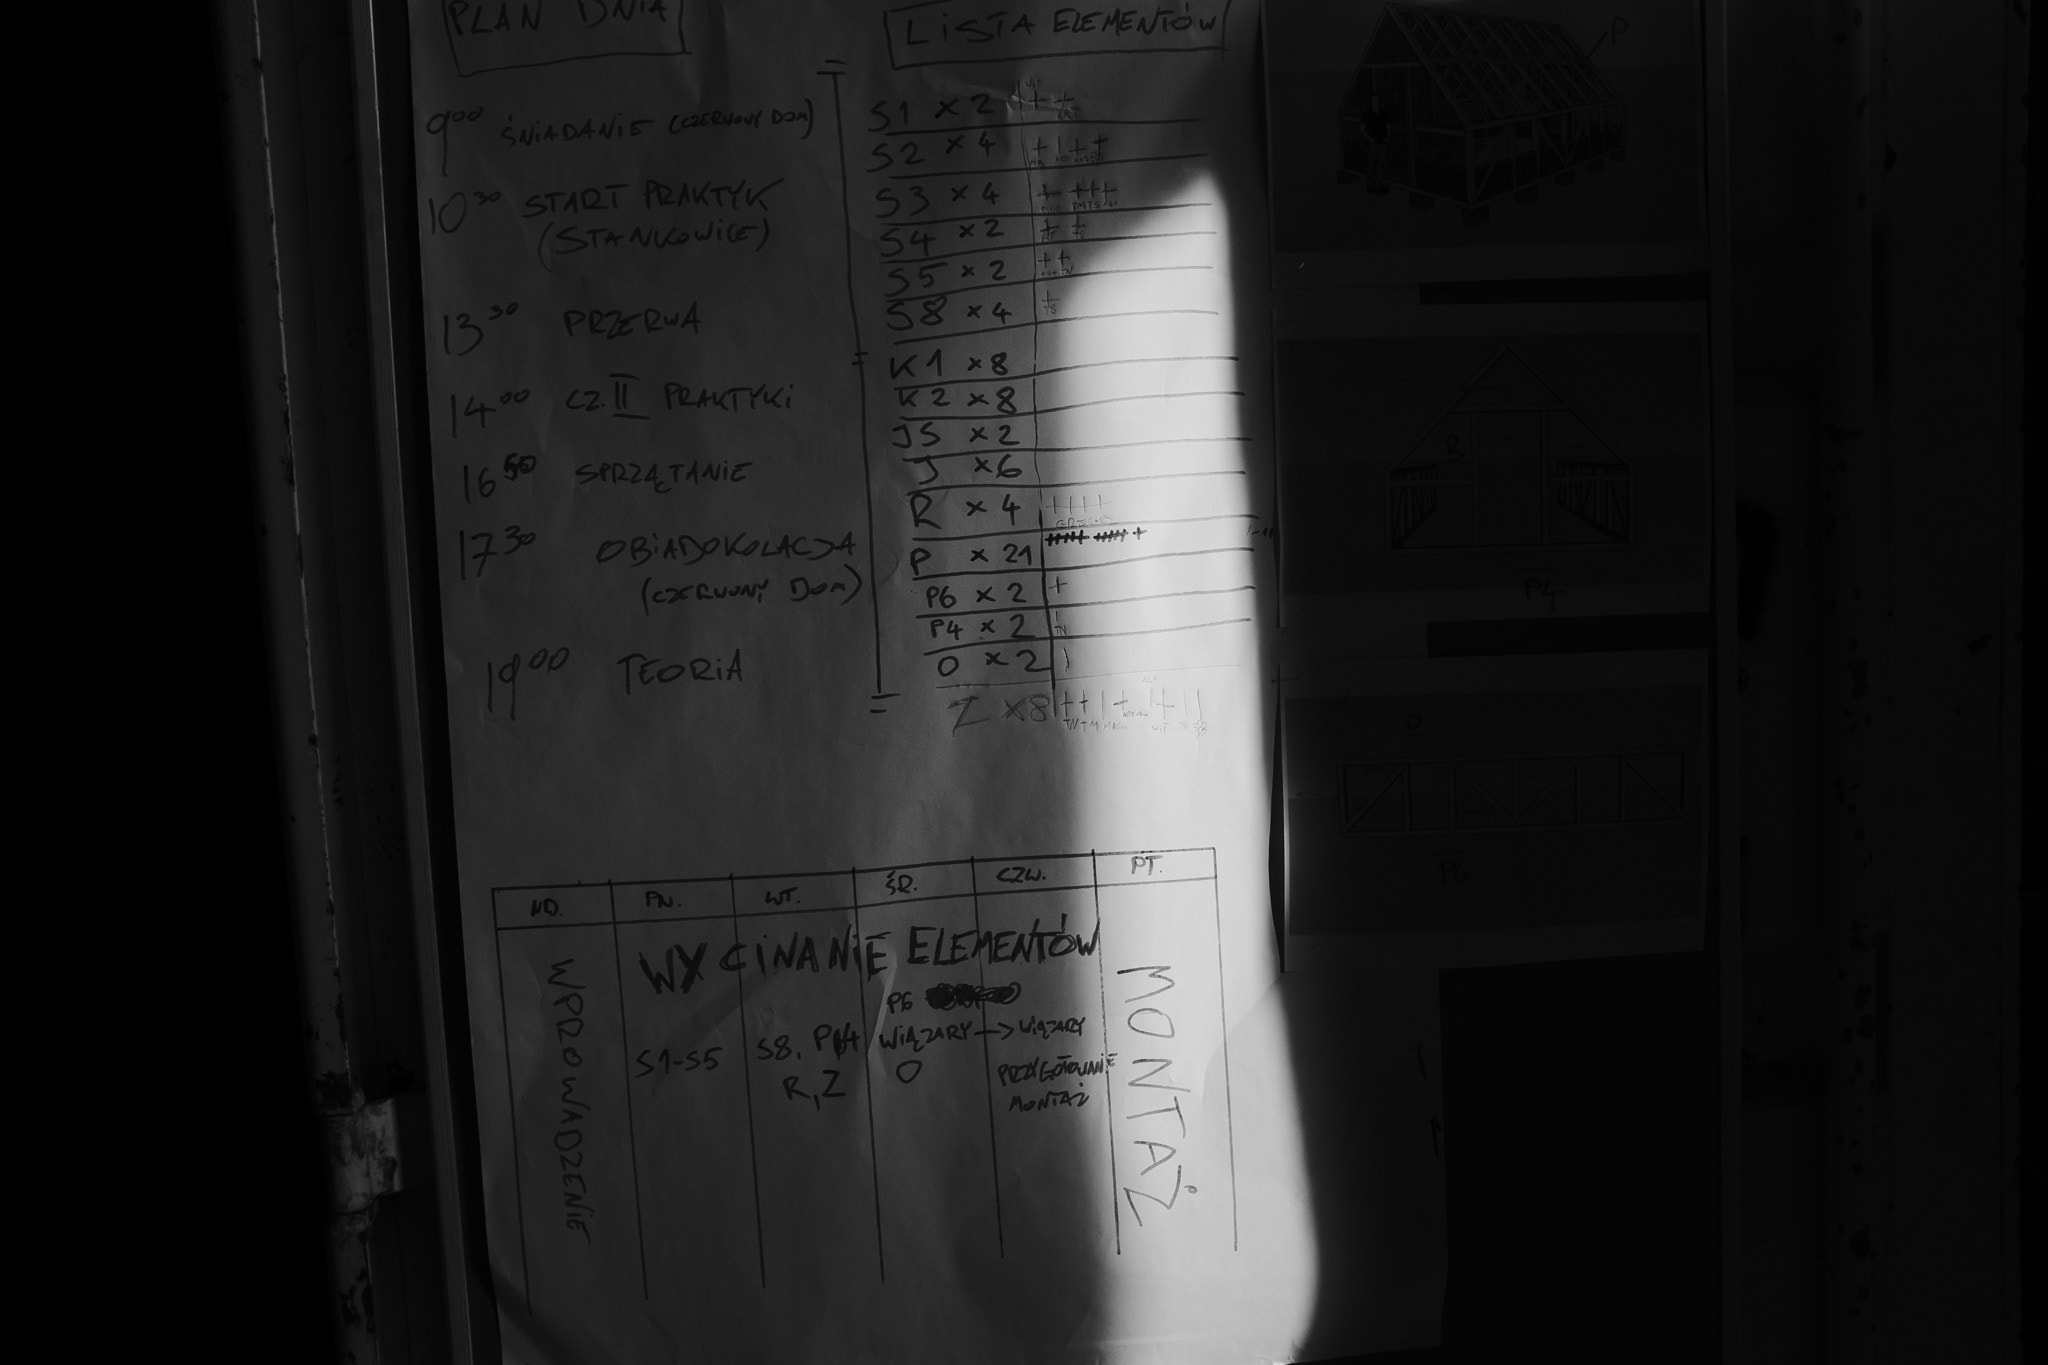 PLAN DNIA
9⁰⁰ ŚNIADANIE (CZERWONY DOM)
10³⁰ START PRAKTYK
(STANKOWICE)
13³⁰ PRZERWA
14⁰⁰ CZ. II PRAKTYKI
16⁵⁰ SPRZĄTANIE
17³⁰ OBIADOKOLACJA
(CZERWONY DOM)
19⁰⁰ TEORIA
LISTA ELEMENTÓW
S1 x 2
S2 x 4
S3 x 4
S4 x 2
S5 x 2
S8 x 4
K1 x 8
K2 x 8
JS x 2
J x 6
R x 4
P x 21
P6 x 2
P4 x 2
O x 2
Z x 8
ND. PN. WT. ŚR. CZW. PT.
WPROWADZENIE
WYCINANIE ELEMENTÓW
S1-S5
S8, P4
R, Z
P6
WIĄZARY → WIĄZARY
O
PRZYGOTOWANIE
MONTAŻ
MONTAŻ
P
R
P4
O
P6